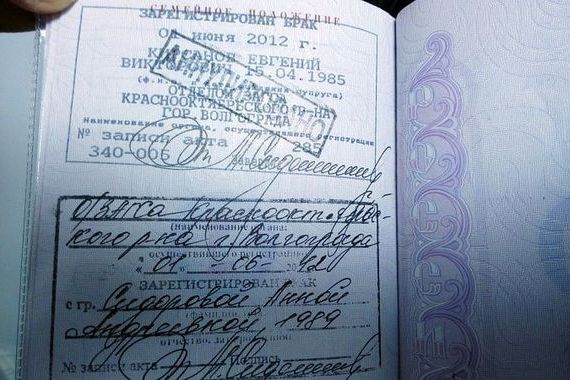 СЕМЕЙНОЕ ПОЛОЖЕНИЕ
ЗАРЕГИСТРИРОВАН БРАК
июня 2012 г.
ЕВГЕНИЙ
15.04.1985
супруга)
КРАСНООКТЯБРЬСКОГО Р-НА
ГОР. ВОЛГОГРАДА
Наименование органа, осуществившего регистрацию
№ записи акта 285
340-006
ЗАГСа Краснооктябрь-
ского р-на г. Волгограда
(наименование органа,
осуществившего регистрацию)
ЗАРЕГИСТРИРОВАН БРАК
с гр. Сидоровой Анной
Андреевной, 1989
отчество, дата рождения)
№ записи акта Подпись